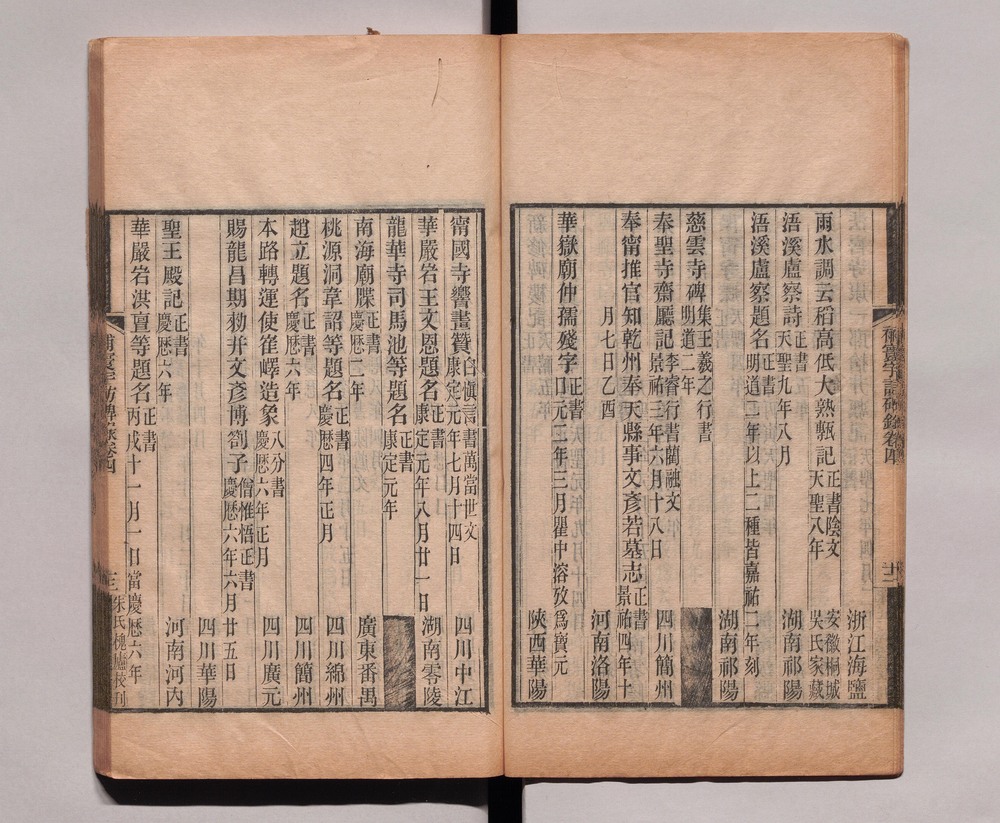 浙江海鹽
雨水調云稻萬低大熟甎記正書陰文天聖八年 安徽桐城吳氏家藏
浯溪盧察詩正書天聖九年八月 湖南祁陽
浯溪盧察題名正書明道二年以上二種皆嘉祐二年刻
湖南祁陽
慈雲寺碑集王羲之行書明道二年
奉聖寺齋廳記李睿行書藺融文景祐三年六月十八日 四川簡州
奉甯推官知乾州奉天縣事文彥若墓志正書景祐四年十
月七日乙酉 河南洛陽
華嶽廟仲孺殘字正書口元二年三月瞿中溶攷爲寶元
陝西華陽
補寰宇訪碑錄卷四
十二
甯國寺響畫贊白愼言書萬當世文康定元年七月十四日 四川中江
華嚴岩王文恩題名正書康定元年八月廿一日 湖南零陵
龍華寺司馬池等題名正書康定元年
南海廟牒正書慶歷二年 廣東番禺
桃源洞韋詔等題名正書慶歷四年正月 四川綿州
趙立題名正書慶歷六年 四川簡州
本路轉運使崔嶧造象八分書慶歷六年正月 四川廣元
賜龍昌期勑幷文彥博劄子僧惟悟正書慶歷六年六月廿五日
四川華陽
聖王殿記正書慶歷六年 河南河內
華嚴岩洪亶等題名正書丙戌十一月一日當慶歷六年
補寰宇訪碑錄卷四
十三
朱氏槐廬校刊